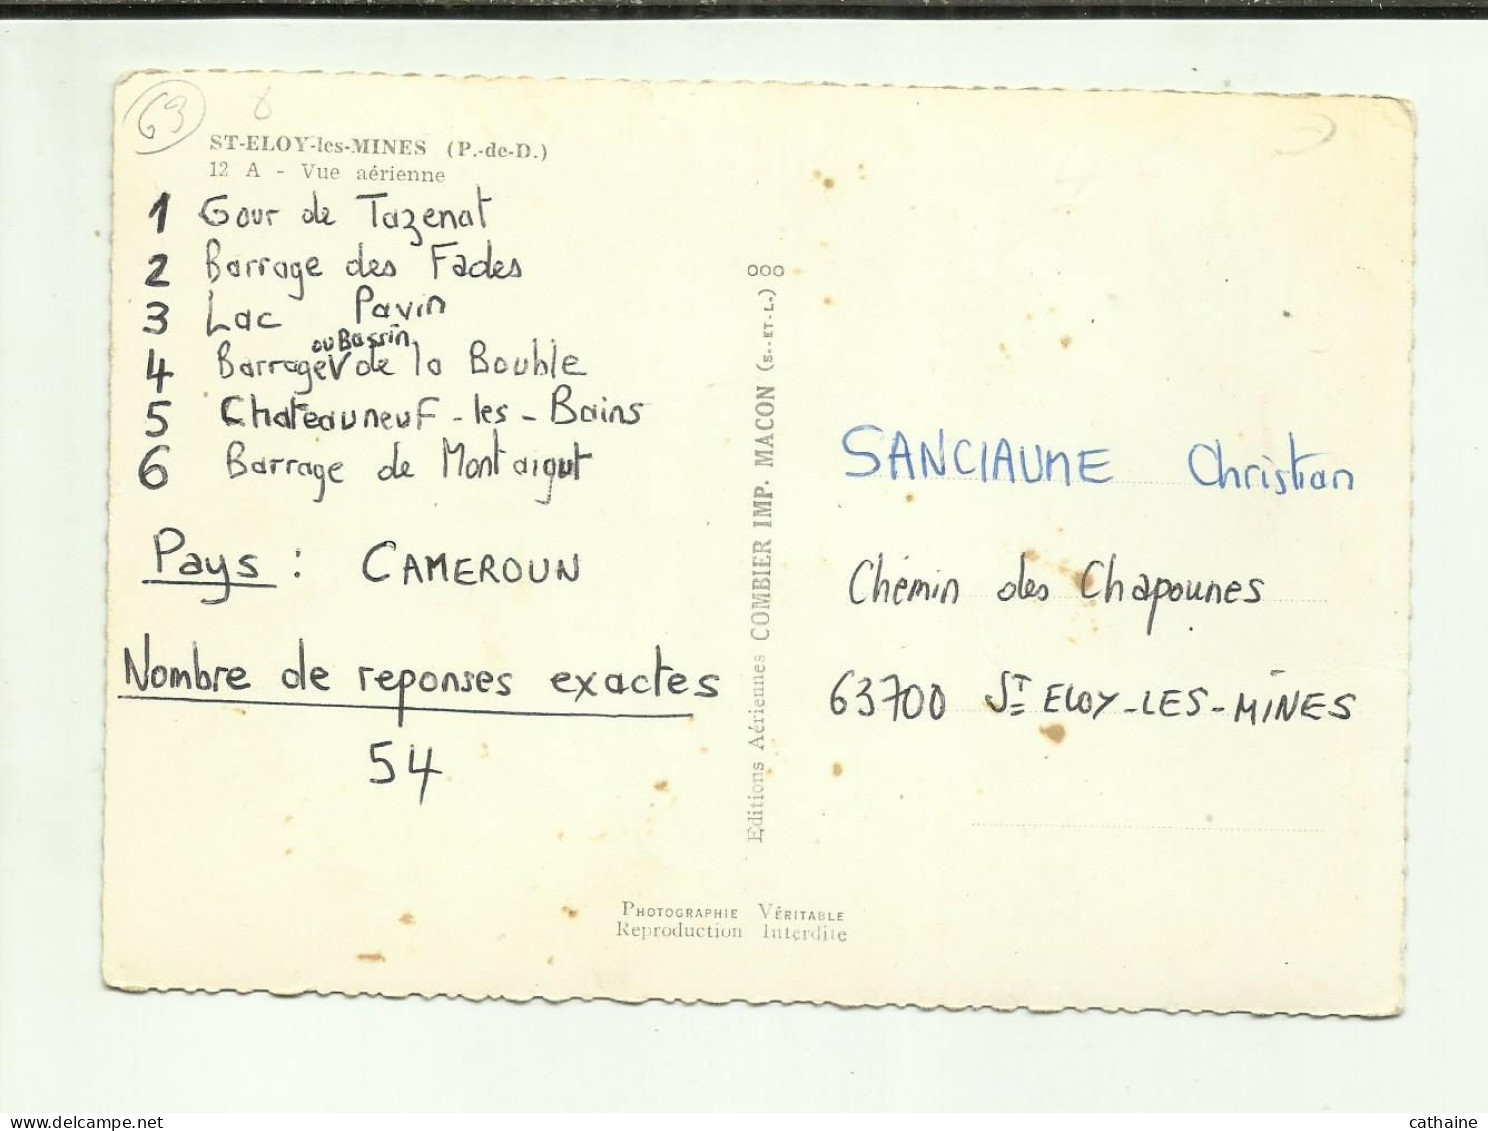 63
ST-ELOY-les-MINES (P.-de-D.)
12 A - Vue aérienne
1 Gour de Tazenat
2 Barrage des Fades
3 Lac Pavin
ou Bassin
4 Barrage V de la Bouble
5 Chateauneuf-les-Bains
6 Barrage de Montaigut
Pays : CAMEROUN
Nombre de reponses exactes
54
Editions Aériennes COMBIER IMP. MACON (S.-ET-L.) OOO
SANCIAUME Christian
Chemin des Chapounes
63700 ST ELOY-LES-MINES
PHOTOGRAPHIE VÉRITABLE
Reproduction Interdite
cathaine